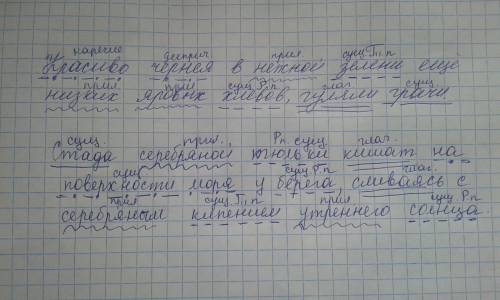 нар наречие дееприч. прил. сущ.Т.п
Красиво чернея в нежной зелени ещё
прил. прил. сущ.Р.п глаг. сущ.
низких яровых хлебов, гуляли грачи.
сущ. прил., Рп. сущ. глаг.
Стада серебряной тюльки кишат на
сущ. сущ.Рп глаг.
поверхности моря у берега, сливаясь с
прил сущ.Т.п прил сущ. Р.п
серебряным кипением утреннего солнца.